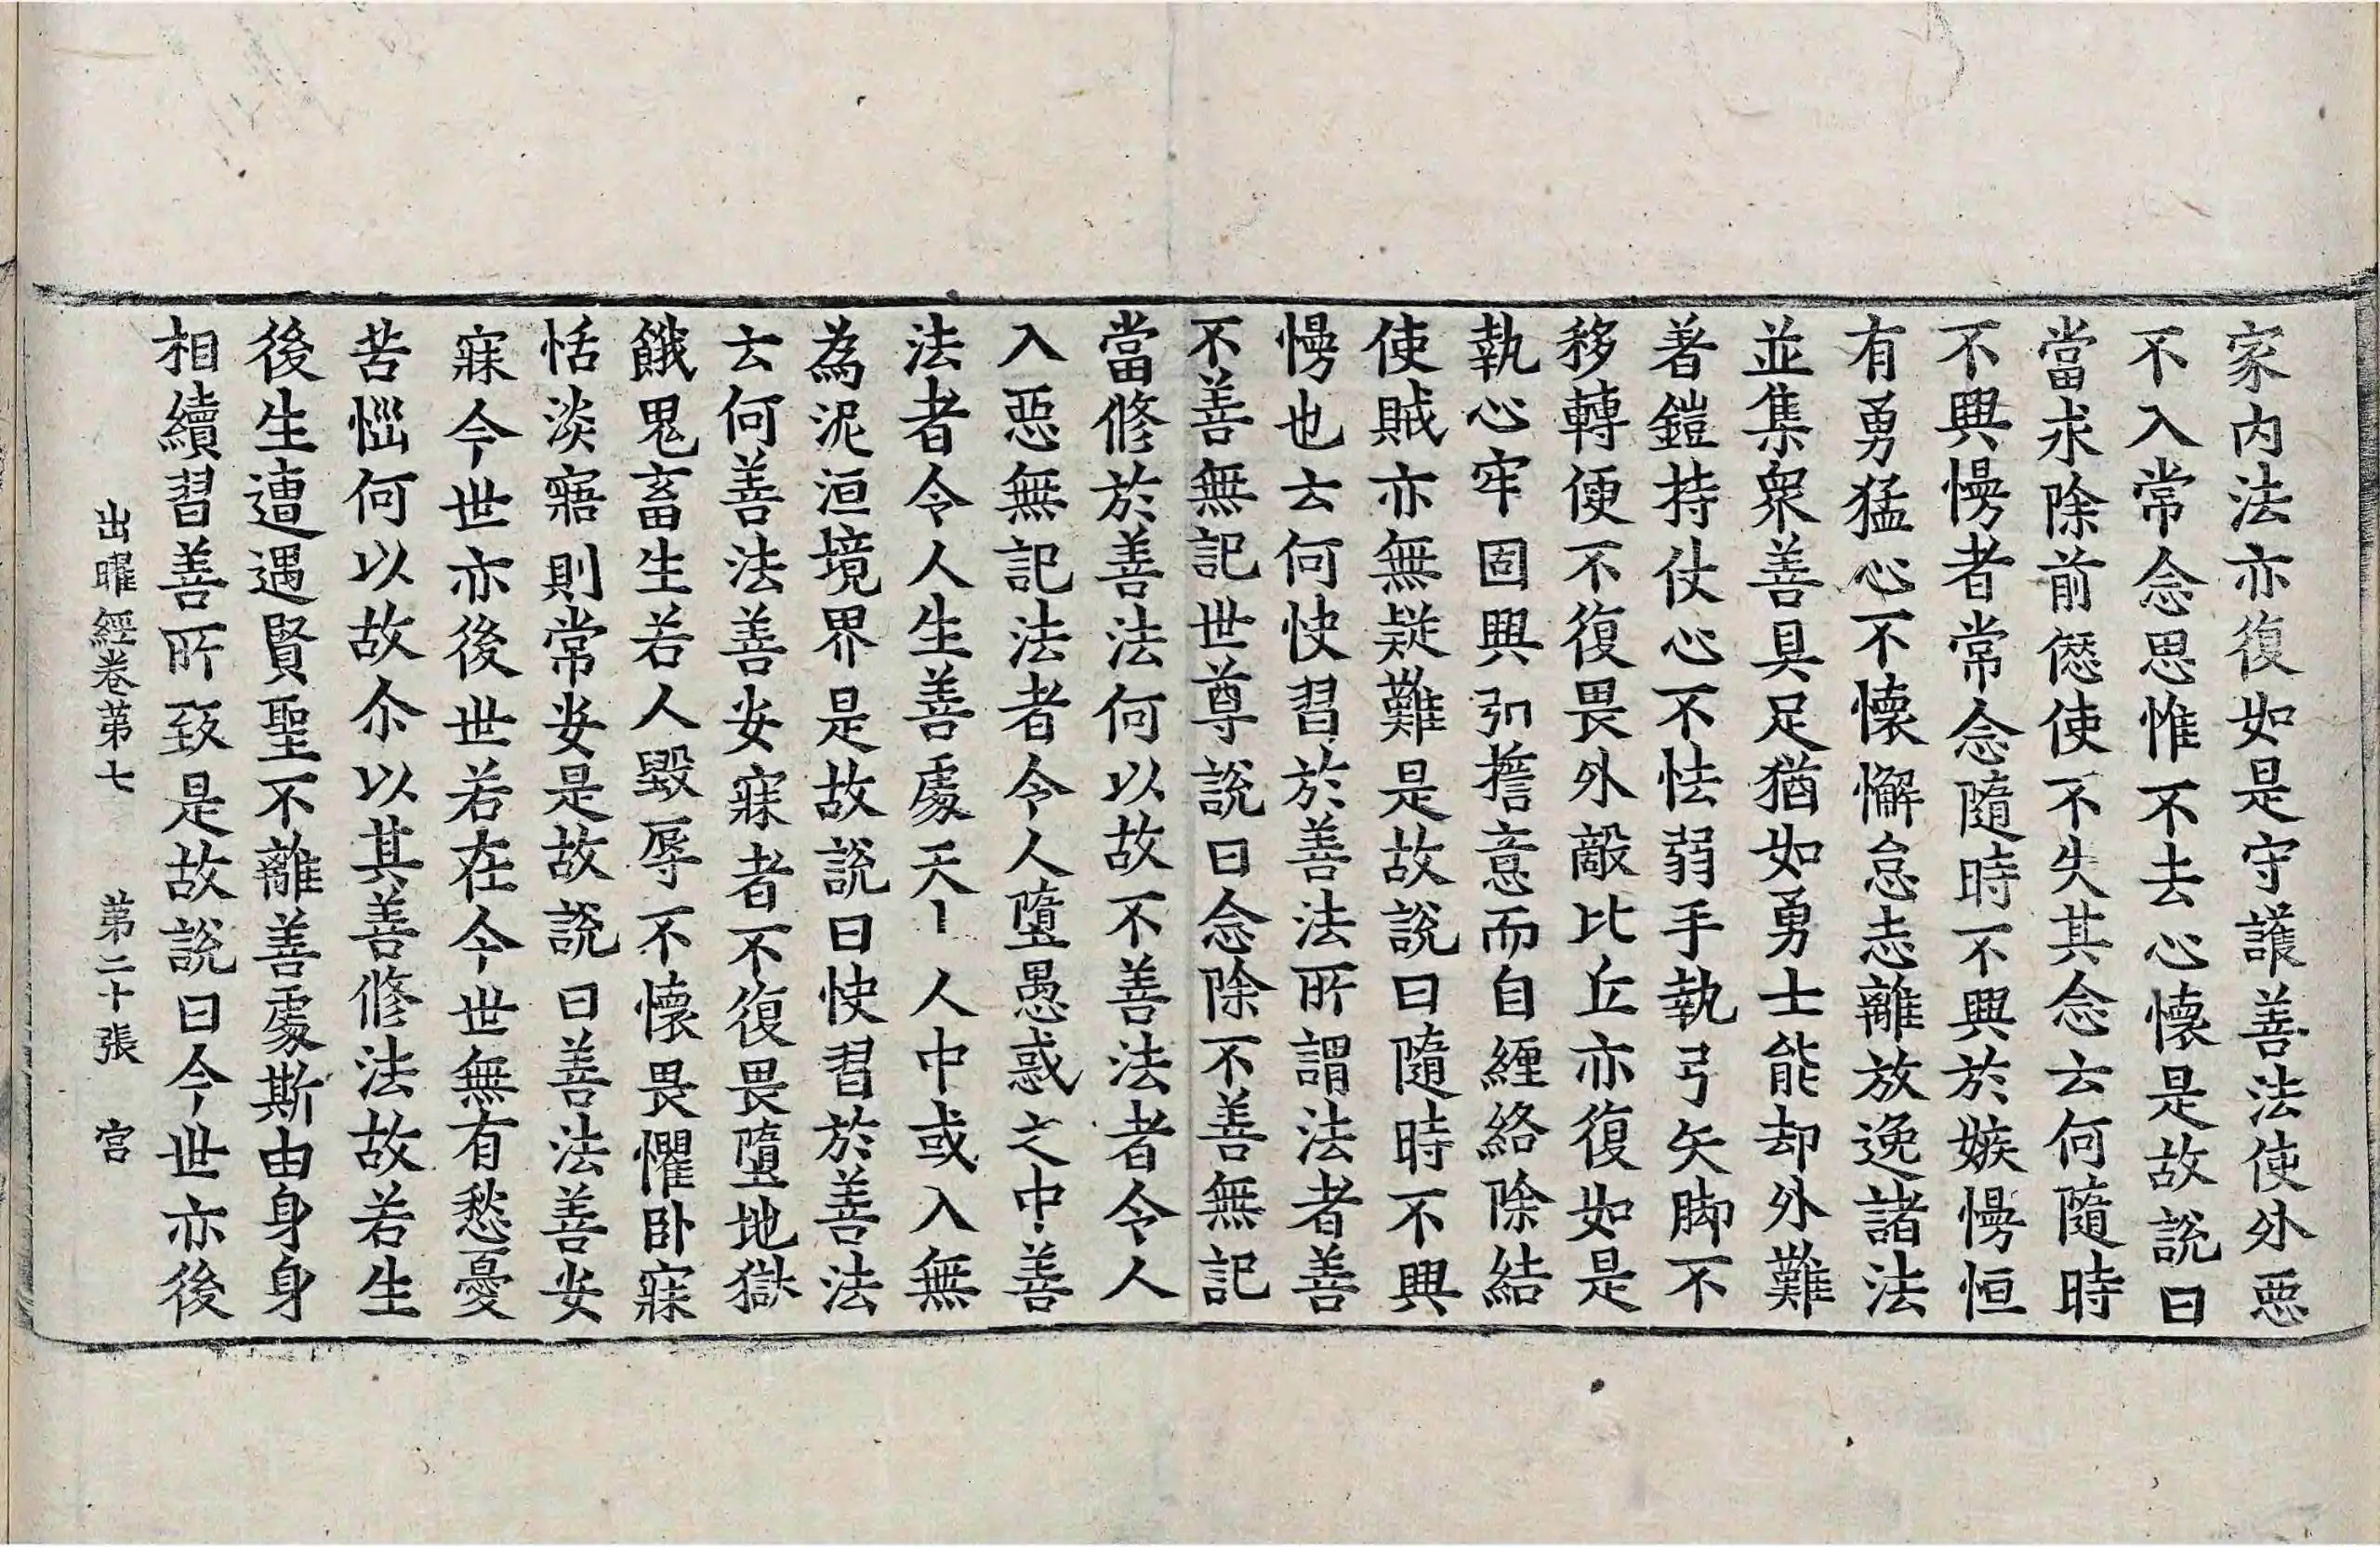 家内法亦復如是守護善法使外惡
不入常念思惟不去心懷是故說曰
當求除前𠎝使不失其念云何隨時
不興慢者常念隨時不興於嫉慢恒
有勇猛心不懷懈怠志離放逸諸法
並集衆善具足猶如勇士能却外難
著鎧持仗心不怯弱手執弓矢脚不
移轉便不復畏外敵比丘亦復如是
執心牢固興弘誓意而自纏絡除結
使賊亦無疑難是故說曰隨時不興
慢也云何快習於善法所謂法者善
不善無記世尊說曰念除不善無記
當修於善法何以故不善法者令人
入惡無記法者令人墮愚惑之中善
法者令人生善處天上人中或入無
為泥洹境界是故說曰快習於善法
云何善法善安寐者不復畏墮地獄
餓鬼畜生若人毀辱不懷畏懼卧寐
恬淡寤則常安是故說曰善法善安
寐今世亦後世若在今世無有愁憂
苦惱何以故尒以其善修法故若生
後生遭遇賢聖不離善處斯由身身
相續習善所致是故說曰今世亦後
出曜經卷第七 第二十張 宮